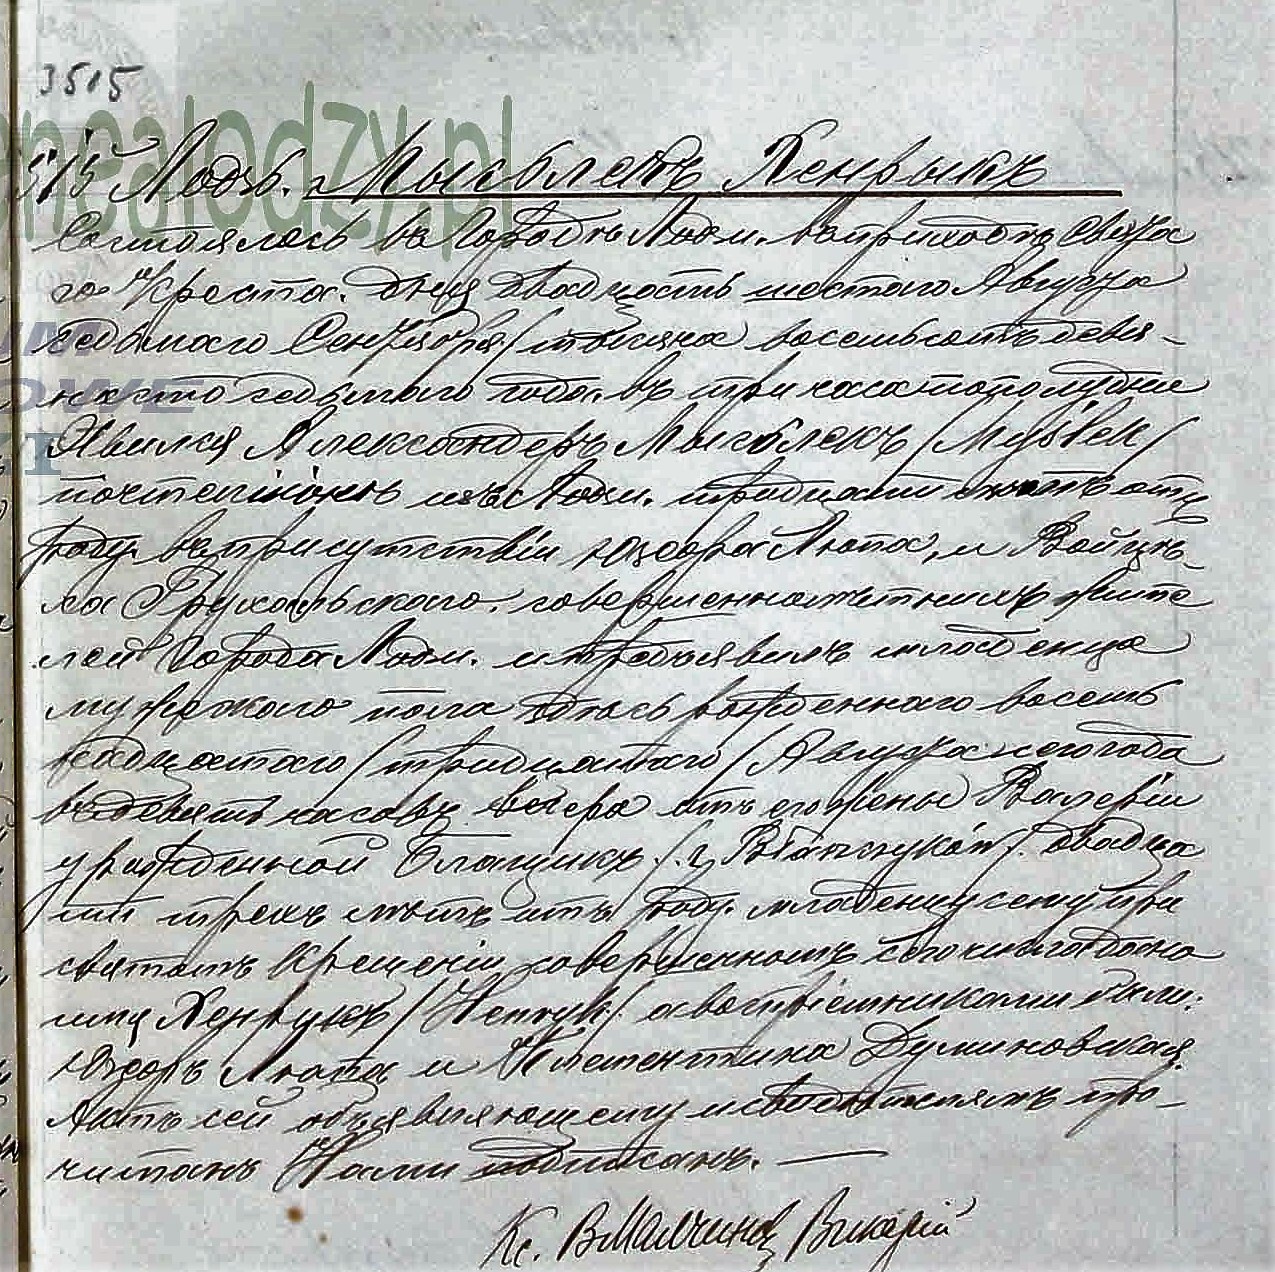 3515
genealodzy.pl
515 Лодзь. Мысблекъ Хенрыкъ
Состоялось въ Городѣ Лодзи, въ приходѣ Свята-
го Креста, дня двадцать шестаго Августа
седьмаго Сентября/ тысяча восемьсотъ девя-
носто седьмого года, въ три часа пополудни
Явился Александеръ Мысблекъ /Myśbek/
изъ Лодзи, тридцати лѣтъ отъ
роду, въ присутствіи Юзефа Липа, и Войцѣ-
ха совершеннолѣтнихъ жите-
лей Города Лодзи, и предъявилъ младенца
мужескаго пола здѣсь рожденнаго восемь
надцатаго /тридцатаго/ Августа сего года
въ девять часовъ вечера отъ его жены Валеріи
урожденной двадца
ти трехъ лѣтъ отъ роду. младенцу сему при
святомъ Крещеніи совершенномъ сего числа дано
имя Хенрыкъ /Henryk/ а воспріемниками были:
Юзефъ Липа и Клементина Думиновская.
Актъ сей объявляющему и свидѣтелямъ про-
читанъ Нами подписанъ. —
Кс. В Малчинск Викарій